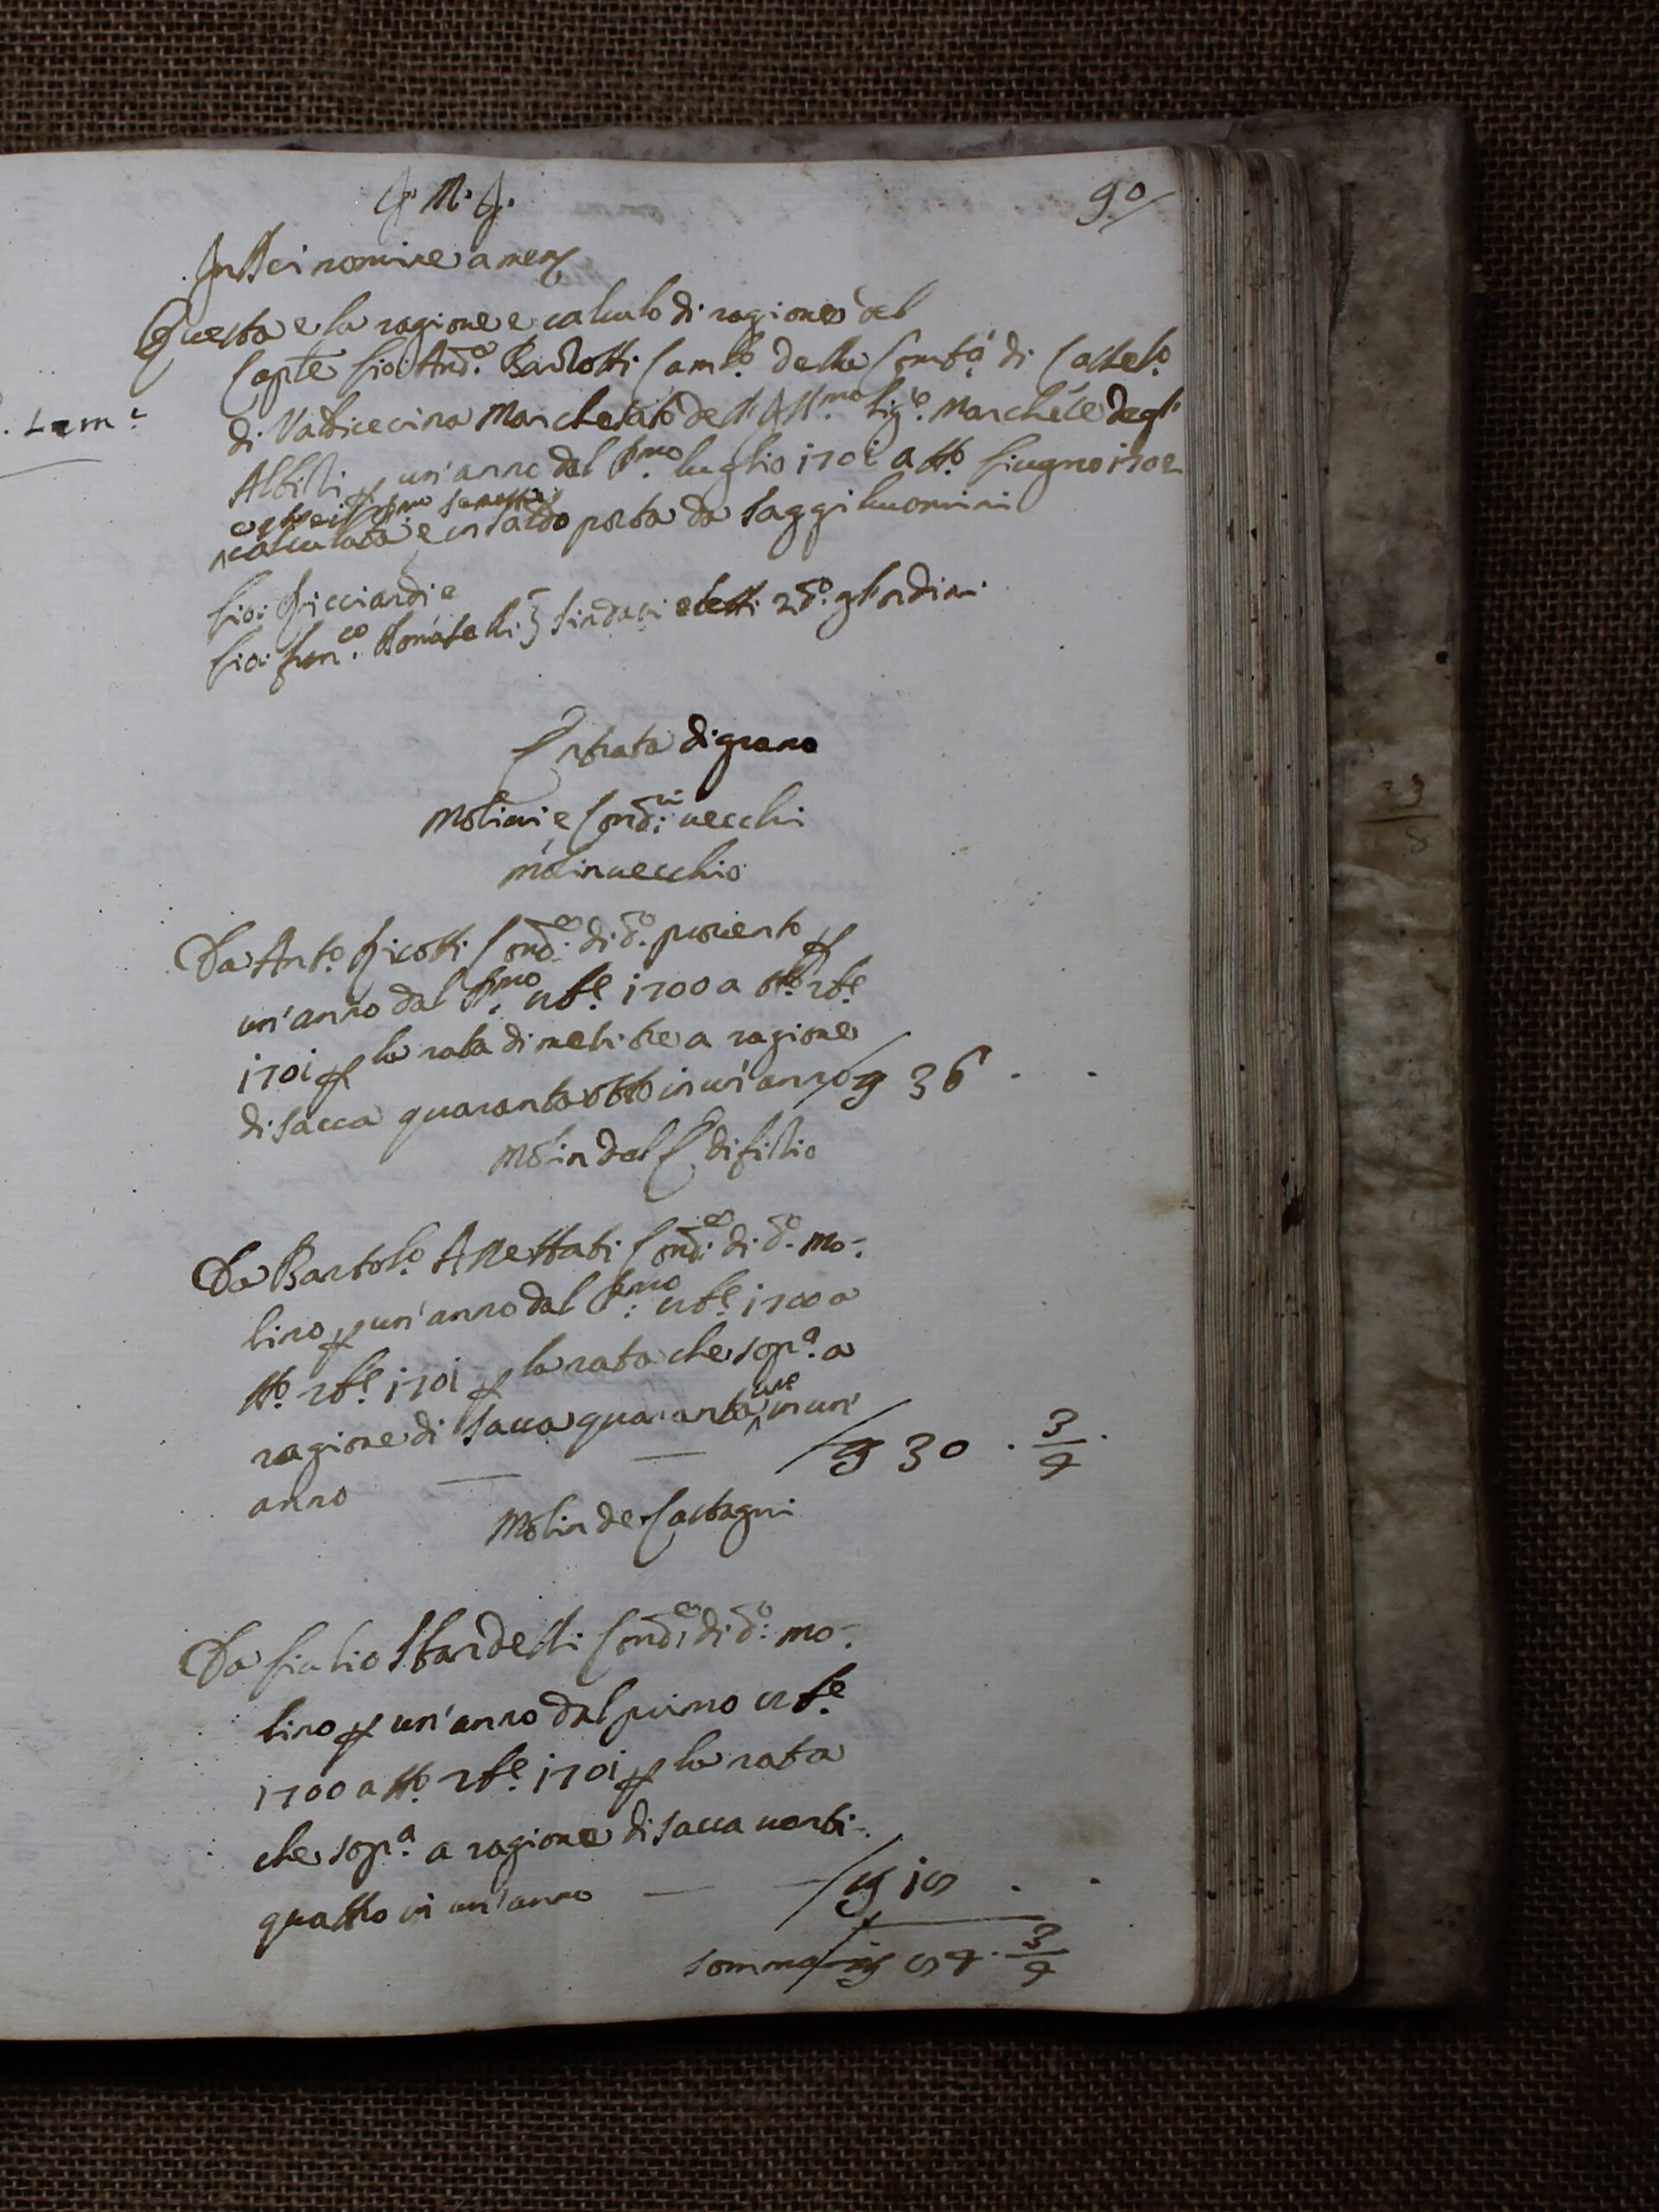 J. M. J.
90
In Dei nomine amen
Questa e la ragione e calculo di ragione del
Cap.te Gio: And.o Bardotti Cam.o della Com.tà di Castel.o
di Valdicecina Marchesato dell Ill.mo Sig.e Marchése degl'
Albizi p un'anno dal P.mo luglio 1701 a tt.o Giugno 1702
calculata e in saldo posta da saggi huomini
Gio: Ricciardi e
Gio: Fran.co Donatelli } Sindaci eletti 2do. gl'ordini
Entrata di grano
Molini e Cond.ri vecchi
Molin vecchio
Da Ant.o Ricotti Cond.e di d.o p un
un'anno dal P.mo 9b.e 1700 a tt.o 8b.e
1701 p la rata di mesi tre a ragione
di sacca quarantotto in un'anno sg 36 . .
Molin dal Edifizio
Da Bartol.o Assettati Cond.e di d.o mo-
lino p un'anno dal P.mo 9b.e 1700 a
tt.o 8b.e 1701 p la rata che sop.a a
ragione di sacca quaranta une in un'
anno — — sg 30 . 3/4 .
Molin de Castagni
Da Giulio Stardelli Cond.e di d.o mo-
lino p un'anno dal primo 9b.e
1700 a tt.o 8b.e 1701 p la rata
che sop.a a ragione di sacca venti-
quattro in un'anno — — sg 18 . .
somma sg 84 . 3/4